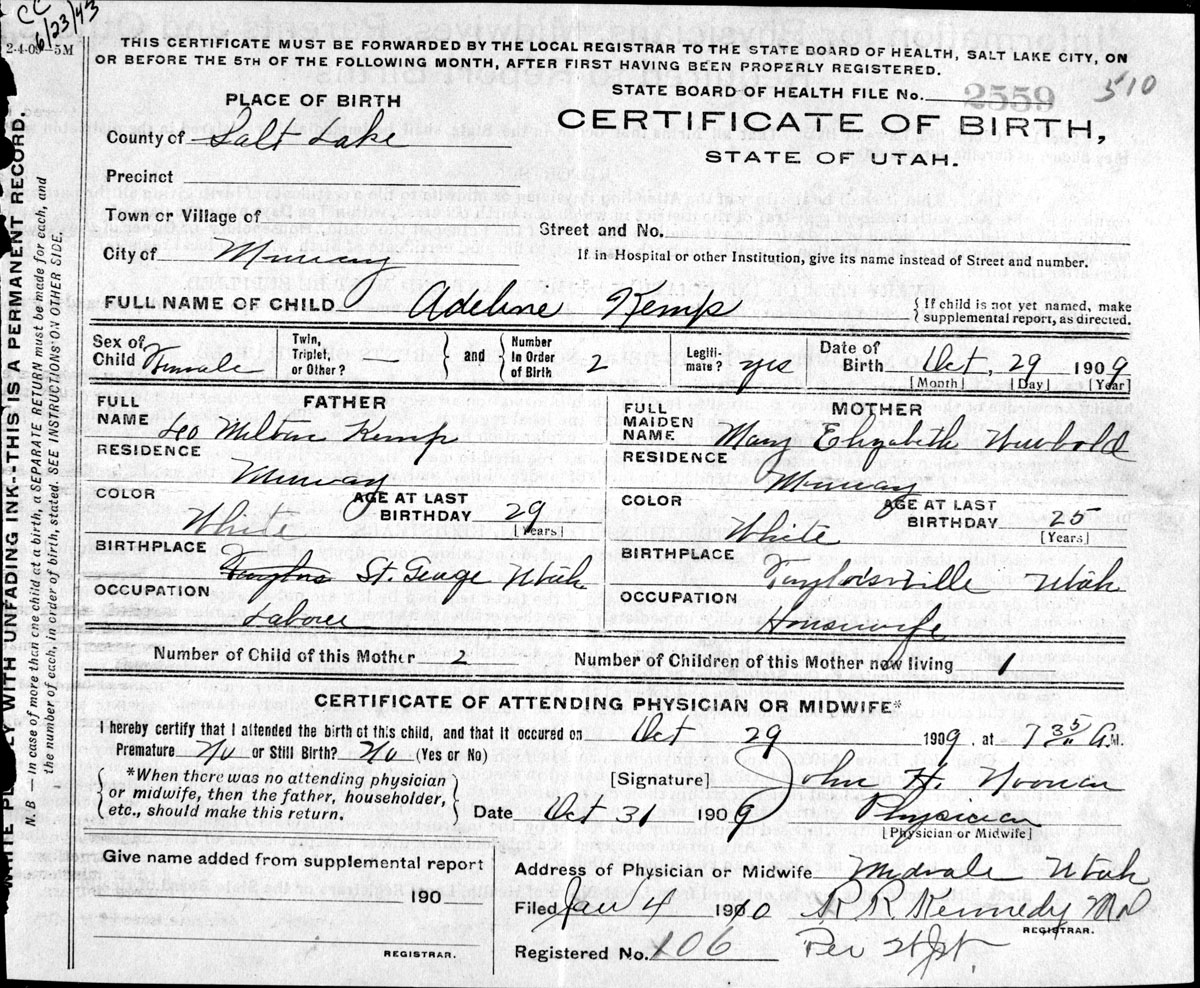 CC
6/23/43
2-4-09—5M
THIS CERTIFICATE MUST BE FORWARDED BY THE LOCAL REGISTRAR TO THE STATE BOARD OF HEALTH, SALT LAKE CITY, ON
OR BEFORE THE 5TH OF THE FOLLOWING MONTH, AFTER FIRST HAVING BEEN PROPERLY REGISTERED.
STATE BOARD OF HEALTH FILE No. 2559 510
PLACE OF BIRTH
CERTIFICATE OF BIRTH,
STATE OF UTAH.
County of Salt Lake
Precinct
Town or Village of
Street and No.
City of Murray
If in Hospital or other Institution, give its name instead of Street and number.
FULL NAME OF CHILD Adeline Kemp { If child is not yet named, make supplemental report, as directed.
Sex of Child Female Twin, Triplet, or Other? } and { Number in Order of Birth 2 Legiti-mate? yes Date of Birth Oct, 29 1909
[Month] [Day] [Year]
FATHER
FULL NAME Leo Milton Kemp
RESIDENCE
Murray
COLOR
White
AGE AT LAST BIRTHDAY 29
[Years]
BIRTHPLACE
St. George Utah
OCCUPATION
Laborer
MOTHER
FULL MAIDEN NAME Mary Elizabeth Newbold
RESIDENCE
Murray
COLOR
White
AGE AT LAST BIRTHDAY 25
[Years]
BIRTHPLACE
Taylorsville Utah
OCCUPATION
Housewife
Number of Child of this Mother 2 Number of Children of this Mother now living 1
CERTIFICATE OF ATTENDING PHYSICIAN OR MIDWIFE*
I hereby certify that I attended the birth of this child, and that it occured on Oct 29 1909, at 7 35 A.M.
Premature No or Still Birth? No (Yes or No)
{ *When there was no attending physician
or midwife, then the father, householder,
etc., should make this return. }
[Signature] John H. Noonan
Date Oct 31 1909 Physician
[Physician or Midwife]
Give name added from supplemental report
190
REGISTRAR.
Address of Physician or Midwife Midvale Utah
Filed Jan 4 1910 R R Kennedy MD
REGISTRAR.
Registered No. 106 Per
WRITE PLAINLY WITH UNFADING INK--THIS IS A PERMANENT RECORD.
N. B.—In case of more than one child at a birth, a SEPARATE RETURN must be made for each, and
the number of each, in order of birth, stated. SEE INSTRUCTIONS ON OTHER SIDE.